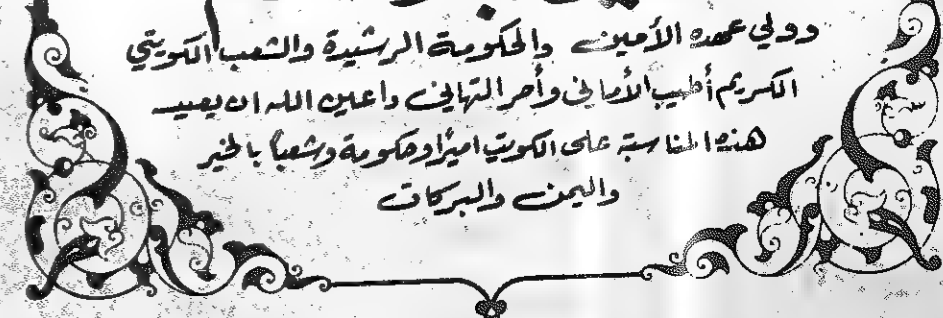 وولي عهده الأمين والحكومة الرشيدة والشعب الكويتي
الكريم أطيب الأماني وأحر التهاني داعين الله ان يعيد
هذه المناسبة على الكويت اميرًا وحكومة وشعباً بالخير
واليمن والبركات